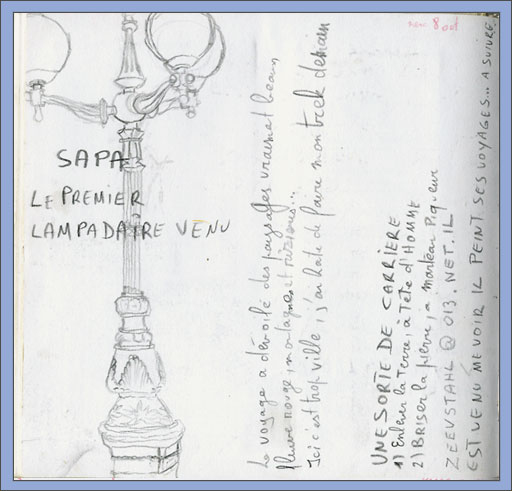 SAPA
LE PREMIER
LAMPADAIRE VENU
Le voyage a dévoilé des paysages vraiment beaux
fleuve rouge, montagnes et rizières...
Ici c'est trop ville, j'ai hâte de faire mon trek demain
UNE SORTE DE CARRIERE
1) Enlever la terre, à Tête d'HOMME
2) Briser la pierre, à marteau Piqueur
ZEEVSTAHL@013.NET.IL
EST VENU ME VOIR IL PEINT SES VOYAGES... A SUIVRE